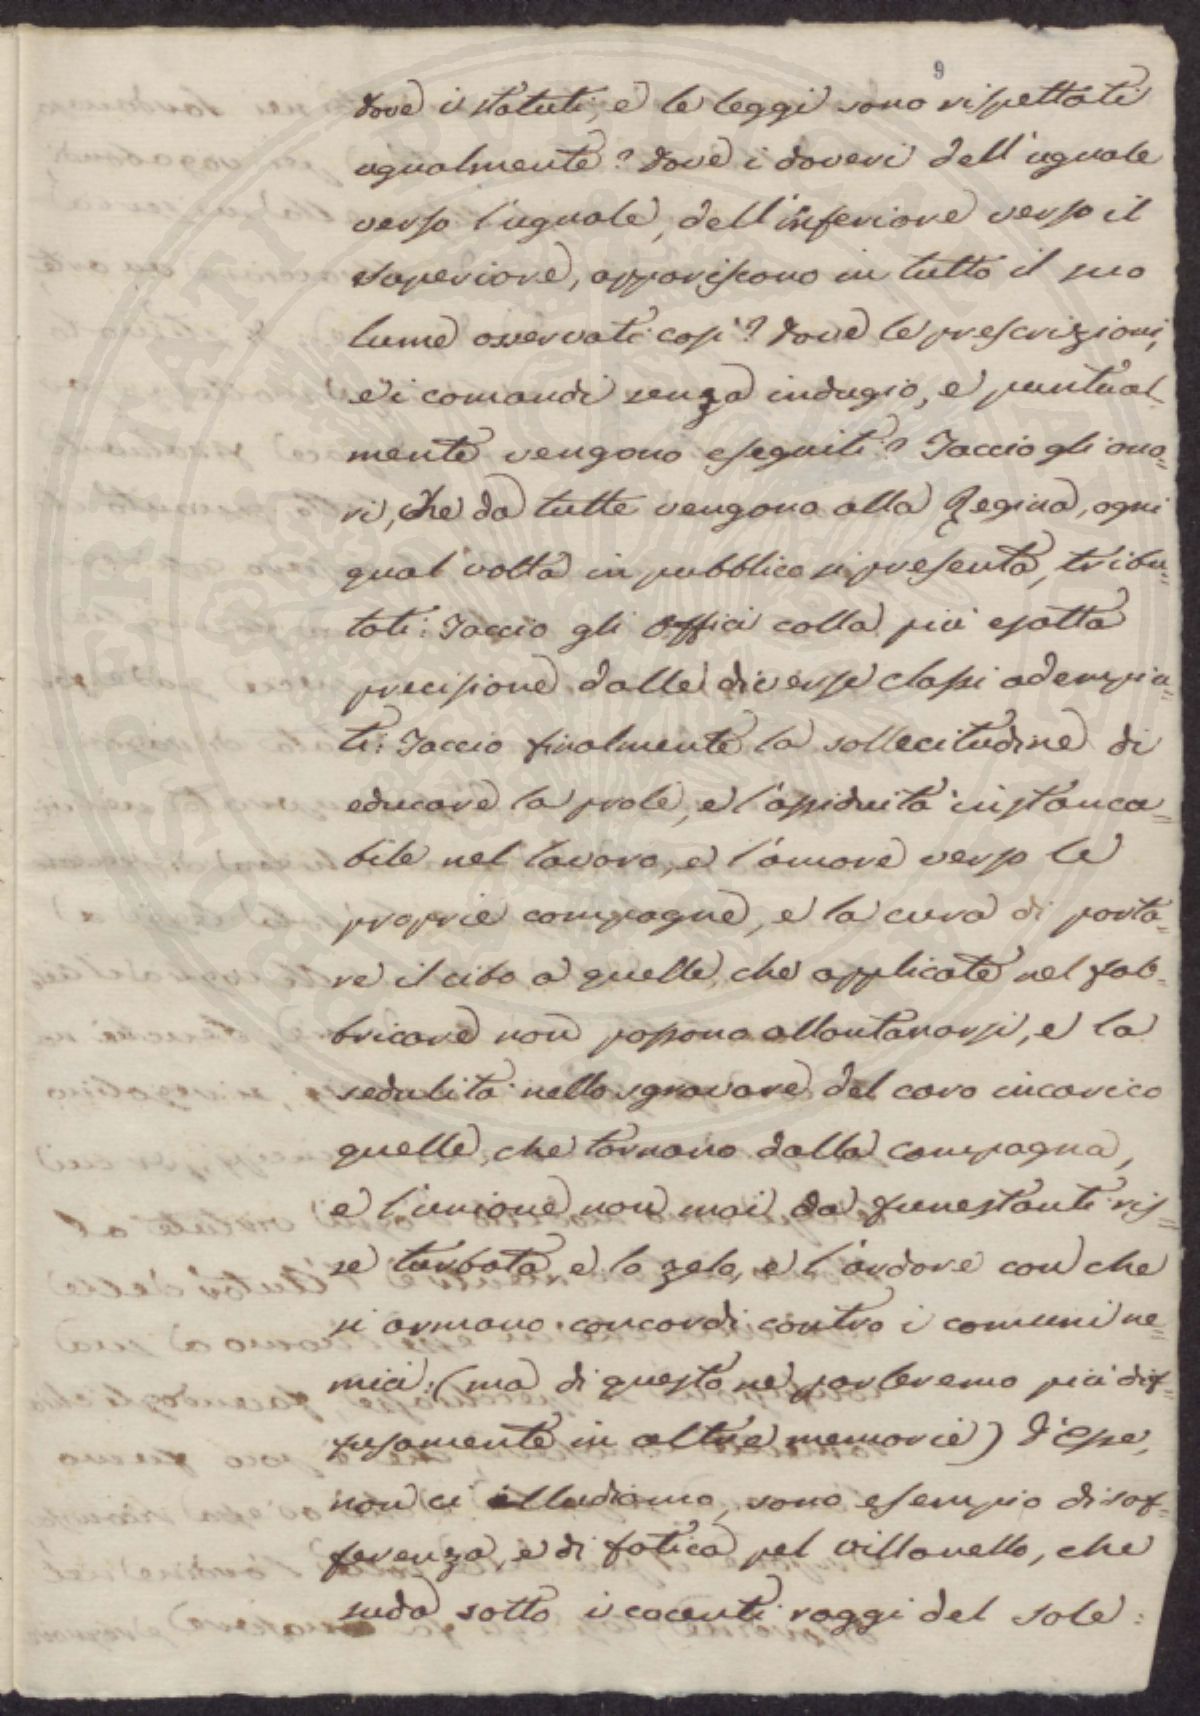 9
dove i statuti, e le leggi sono rispettati
ugualmente? dove i doveri dell'uguale
verso l'uguale, dell'inferiore verso il
superiore, appariscono in tutto il suo
lume osservati così? dove le prescrizioni,
e i comandi senza indugio, e puntual-
mente vengono eseguiti? Taccio gli ono=
ri, che da tutte vengono alla Regina, ogni
qual volta in pubblico si presenta, tribu=
tati: Taccio gli Offici colla più esatta
precisione dalle diverse classi adempiu=
ti: Taccio finalmente la sollecitudine di
educare la prole, e l'assiduità instanca=
bile nel lavoro, e l'amore verso le
proprie compagne, e la cura di porta=
re il cibo a quelle, che applicate nel fab=
bricare non possono allontanarsi, e la
sedulità nello sgravare del caro incarico
quelle, che tornano dalla campagna,
e l'unione non mai da funestanti ris=
se turbata e lo zelo, e l'ardore con che
si armano concordi contro i comuni ne=
mici: (ma di questo ne parleremo più dif=
fusamente in altre memorie) d'Esse,
non ci illudiamo, sono esempio di sof=
ferenza, e di fatica pel villanello, che
suda sotto i cocenti raggi del sole: